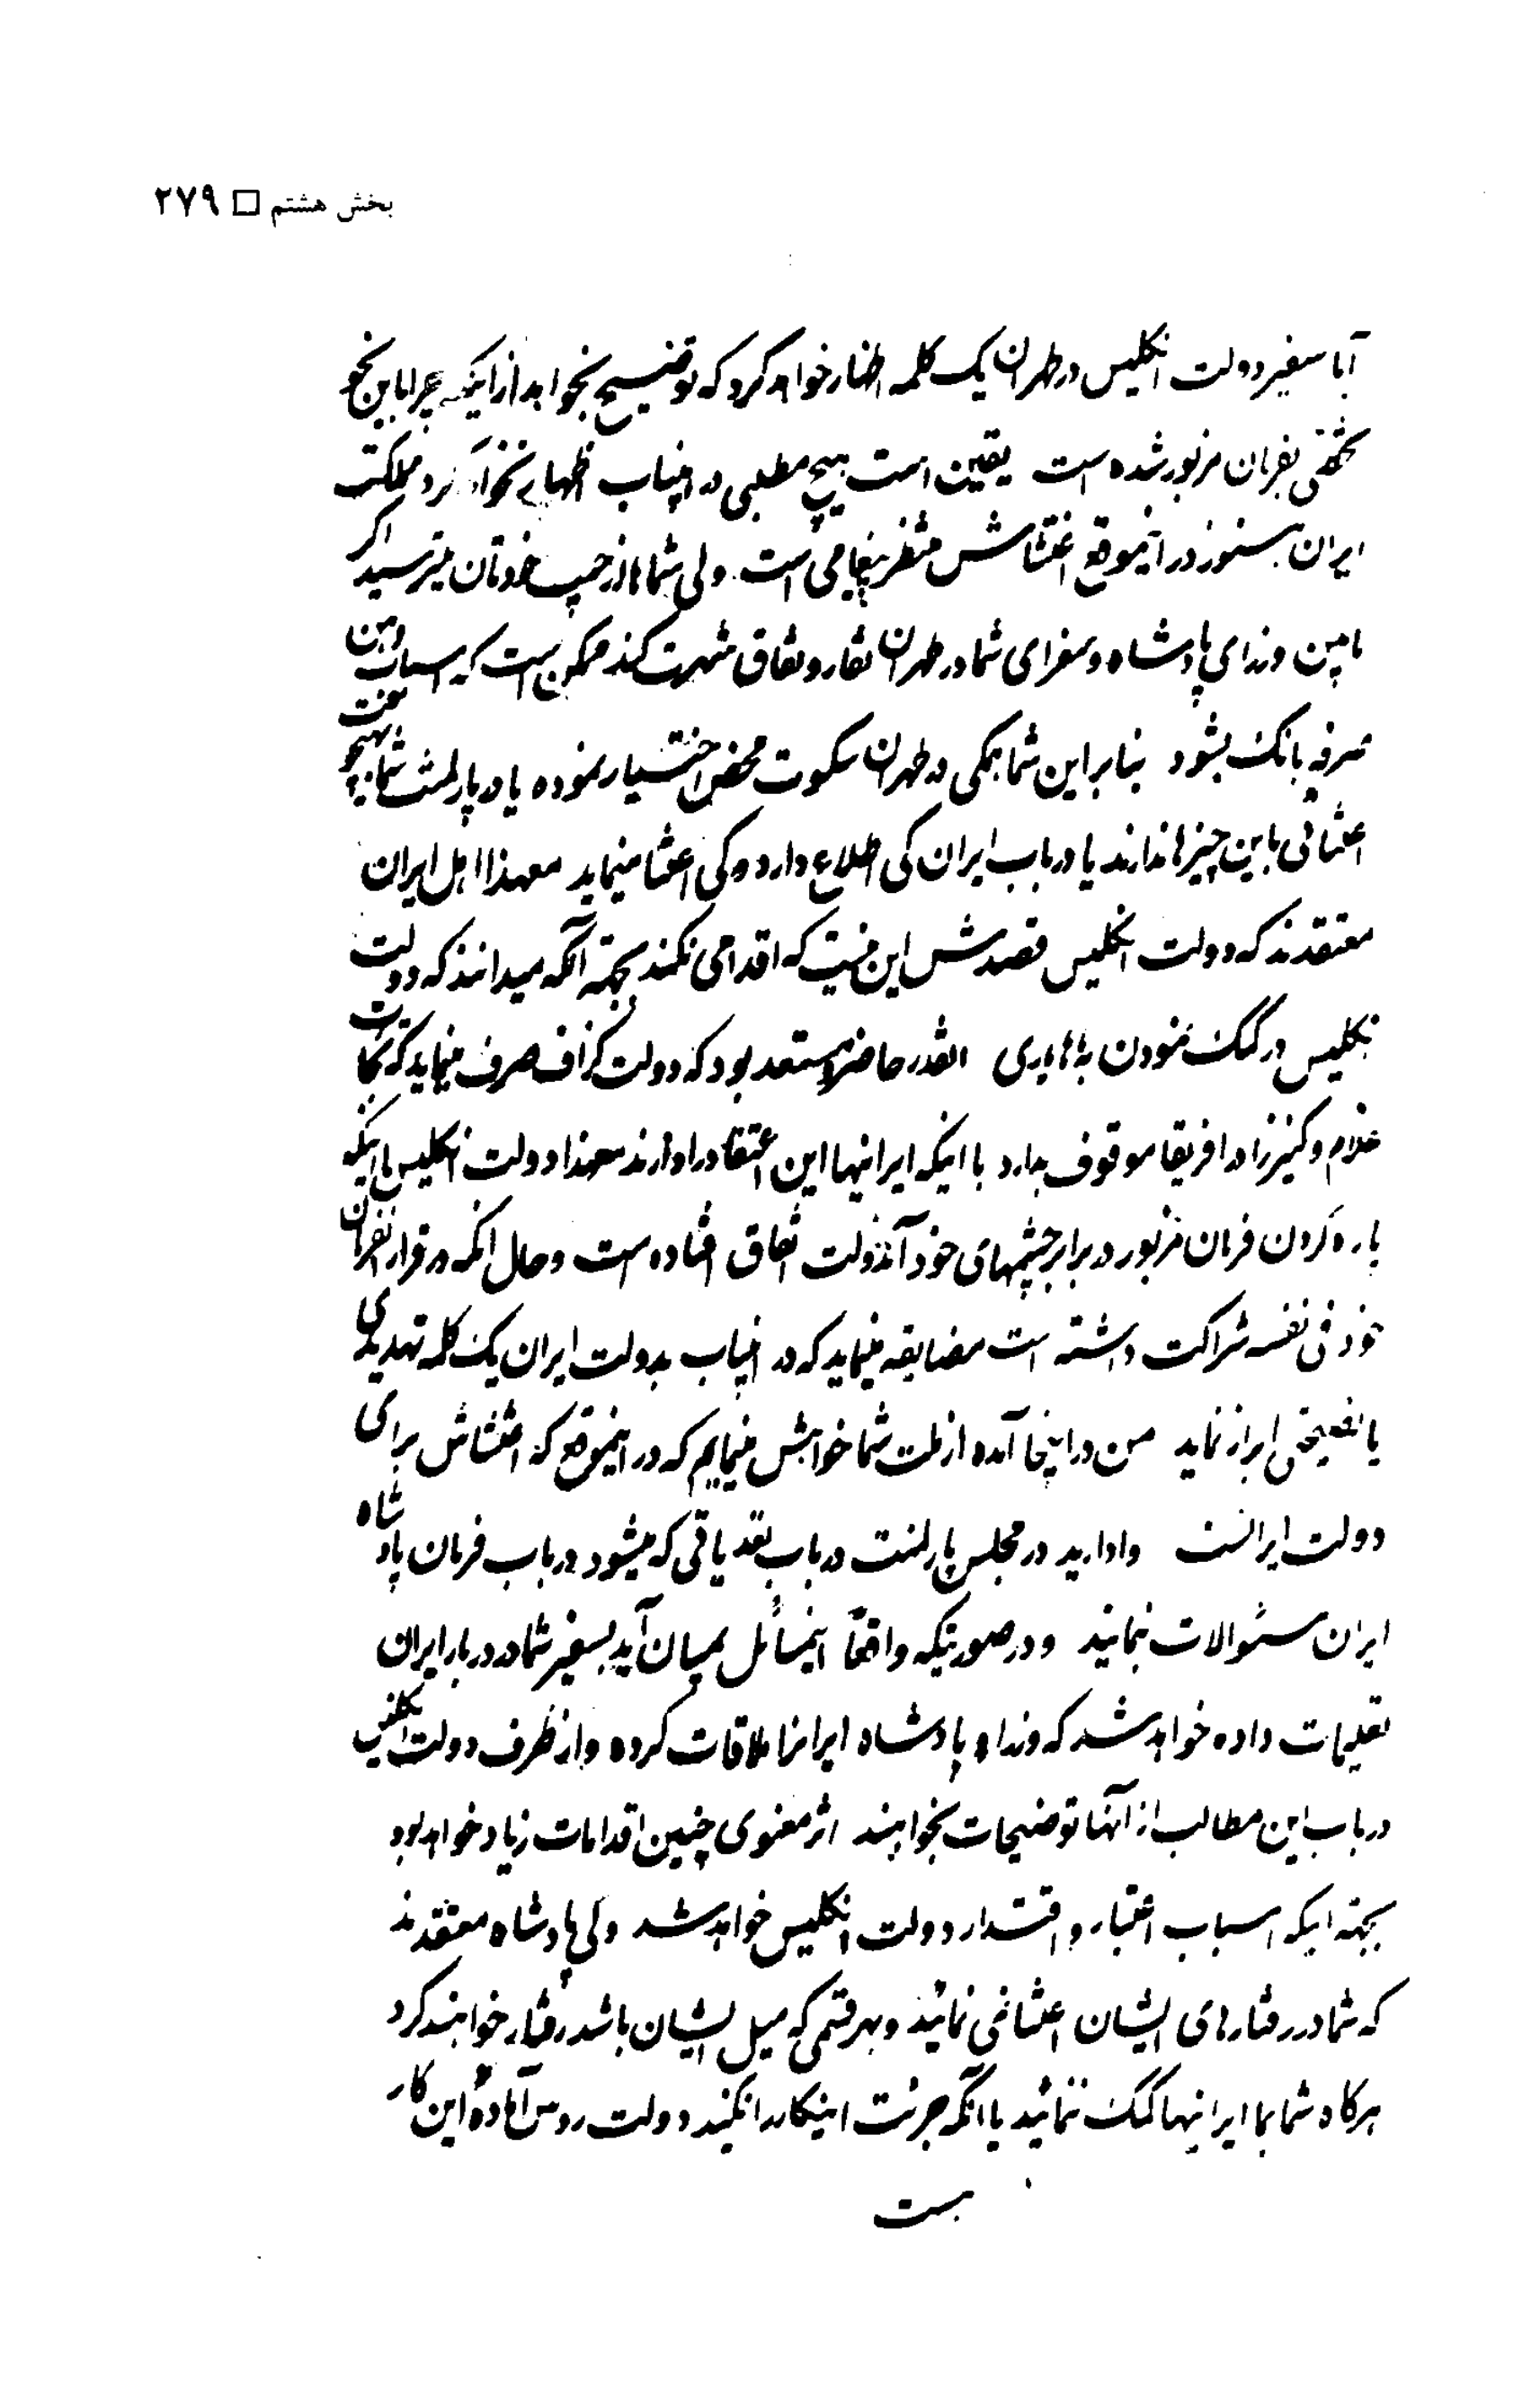 بخش هشتم □ ۲۷۹
آیا سفیر دولت انگلیس در طهران یک کلمه اظهار خواهد کرد که توضیح بخواهد از اینکه چرا باین نحو
تخطی بفرمان مزبور شده است یقین است هیچ مطلبی در اینباب اظهار نخواهد کرد مملکت
ایران هنوز در اینموقع اغتشاش منتظر پیغامی است ولی شماها از جیب خودتان میترسید اگر
مابین وزرای پادشاه و سفرای شما در طهران نقار و نفاق شهرت کند ممکن است که اسباب وهن
صرفه بانک بشود بنابراین شما همگی در طهران سکوت محض اختیار نموده یا در پارلمنت شما بهیچوقت
اعتنائی باین چیزها ندارند یا در باب ایران کی اطلاع دارد و کی اعتنا مینماید معهذا اهل ایران
معتقدند که دولت انگلیس قصدش این نیست که اقدامی نکند بجهة آنکه میدانند که دولت
انگلیس در کمک نمودن به اهاری آنقدر حاضر و مستعد بود که دولت گزاف صرف مینماید که تجارت
غلام و کنیز را در افریقا موقوف بدارد با اینکه ایرانیها این اعتقاد را دارند معهذا دولت انگلیس با اینکه
پاره کردن فرمان مزبور در برابر چشمهای خود آندولت اتفاق افتاده است و حال آنکه در قرار فرمان
خود فی نفسه شراکت داشته است مضایقه مینماید که در اینباب بدولت ایران یک کلمه تهدیدی
یا نصیحتی ابراز نماید من در اینجا آمده از ملت شما خواهش مینمایم که در اینموقع که اغتشاش برای
دولت ایرانست وادارید در مجلس پارلمنت در باب تعدیاتی که میشود در باب فرمان پادشاه
ایران سئوالات بنمایند و در صورتیکه واقعاً اینمسائل بمیان آید بسفیر شما در دربار ایران
تعلیمات داده خواهد شد که وزراء و پادشاه ایرانرا ملاقات کرده و از طرف دولت انگلیس
در باب این مطالب از آنها توضیحات بخواهند اثر معنوی چنین اقدامات زیاد خواهد بود
بجهة اینکه اسباب اعتبار و اقتدار دولت انگلیس خواهد شد ولی پادشاه معتقدند
که شما در رفتارهای ایشان اعتنا نمی نمائید و بهر قسمی که میل ایشان باشد رفتار خواهند کرد
هرگاه شما بما ایرانیها کمک ننمائید یا آنکه جرئت اینکار را نکنید دولت روس آماده این کار
هست